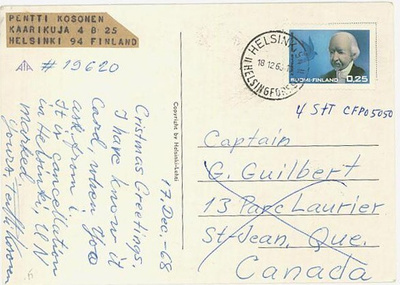 PENTTI KOSONEN
KAARIKUJA 4 B 25
HELSINKI 94 FINLAND
# 19620
17. Dec. -68
Cristmas Greetings.
I have know it
Card, when You
ask from i
It is cancellation
in Helsinki, UN
marked
Yours, Pentti Kosonen
Copyright by Helsinki-Lotsi
HELSINKI
18.12.68
HELSINGFORS
SUOMI-FINLAND
0,25
4 Stt CFPO 5050
Captain
G. Guilbert
13 Parc Laurier
St-Jean, Que.
Canada